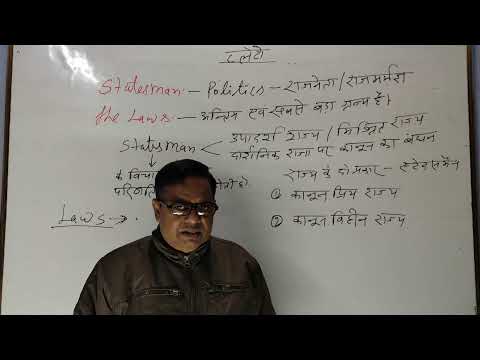 प्लेटो
Statesman - Politics - राजनेता / राजमर्मज्ञ
The Laws - अन्तिम एवं सबसे बड़ा ग्रन्थ है।
Statesman < उपादर्श राज्य / मिश्रित राज्य
दार्शनिक राजा पर कानून का बंधन
के विचा
राज्य के दो प्रकार - स्टेट्समैन
परिणति
① कानून प्रिय राज्य
Laws → .
② कानून विहीन राज्य